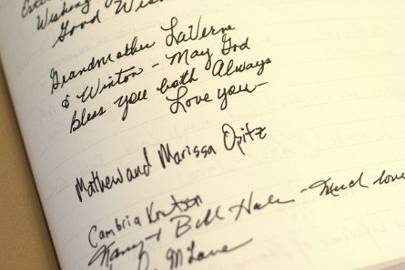 Wishing
Good Wis
Grandmother LaVerne
& Winton - May God
bless you both Always
Love you -
Mathew and Marissa Opitz
Cambria Knutson
Nancy & Bill Hale - Much love